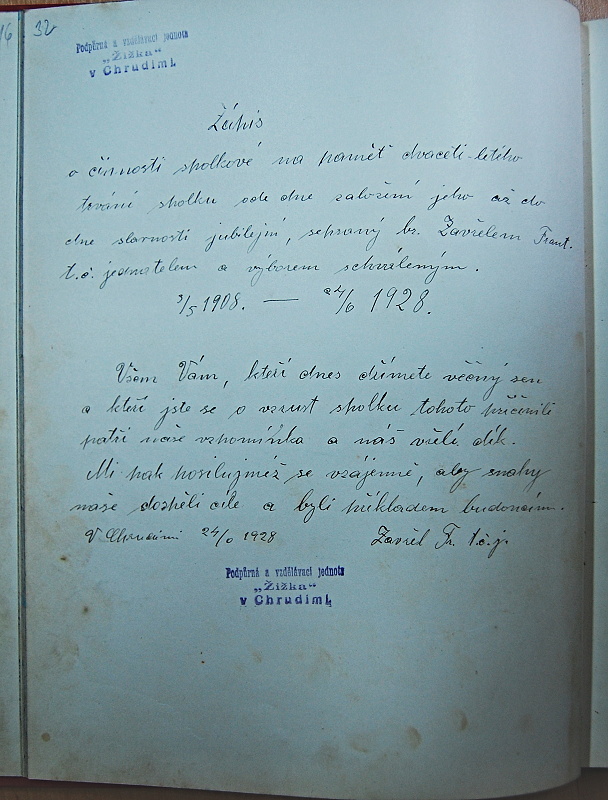 16
32
Podpůrná a vzdělávací jednota
„Žižka“
v Chrudimi.
Zápis
o činnosti spolkové na paměť dvaceti-letého
trvání spolku ode dne založení jeho až do
dne slavnosti jubilejní, sepsaný br. Zavřelem Frant.
t.č. jednatelem a výborem schváleným.
3/5 1908. — 24/6 1928.
Všem Vám, kteří dnes dřímete věčný sen
a kteří jste se o vzrust spolku tohoto přičinili
patří naše vzpomínka a náš vřelý dík.
Mi pak posilujmež se vzájemně, aby snahy
naše dospěli cíle a byli příkladem budoucím.
V Chrudimi 24/6 1928 Zavřel Fr. t.č. j.
Podpůrná a vzdělávací jednota
„Žižka“
v Chrudimi.